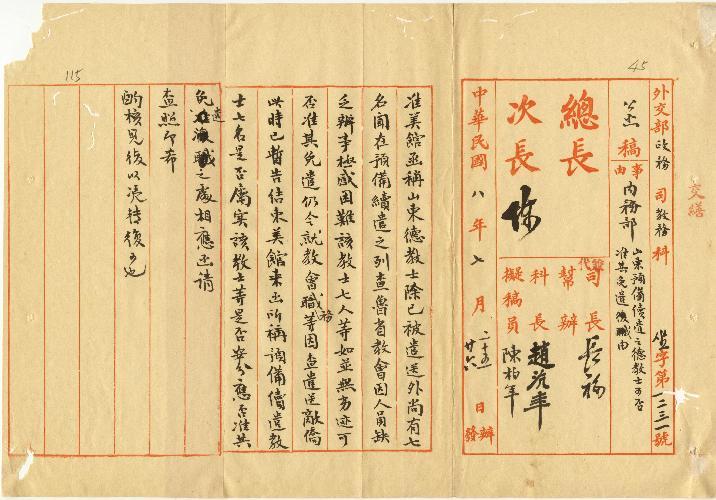 45
外交部政務司教務科
字第一二三一號
交繕
公函稿
事由
內務部
山東預備續遣之德教士可否
准其免遣復職由
總長
次長
代
司長 長福
幫辦
科長 趙沇年
擬稿員 陳柏年
中華民國八年七月二十五日辦
廿六 發
准美館函稱山東德教士除已被遣送外尚有七
名閒在預備續遣之列查魯省教會因人員缺
乏辦事極感困難該教士七人等如並無劣迹可
否准其免遣仍令就教會職務等因查遣送敵僑
此時已暫告結束美館來函所稱預備續遣教
士七名是否屬實該教士等是否安分應否准其
免遣復職之處相應函請
查照即希
酌核見復以憑轉復可也
115